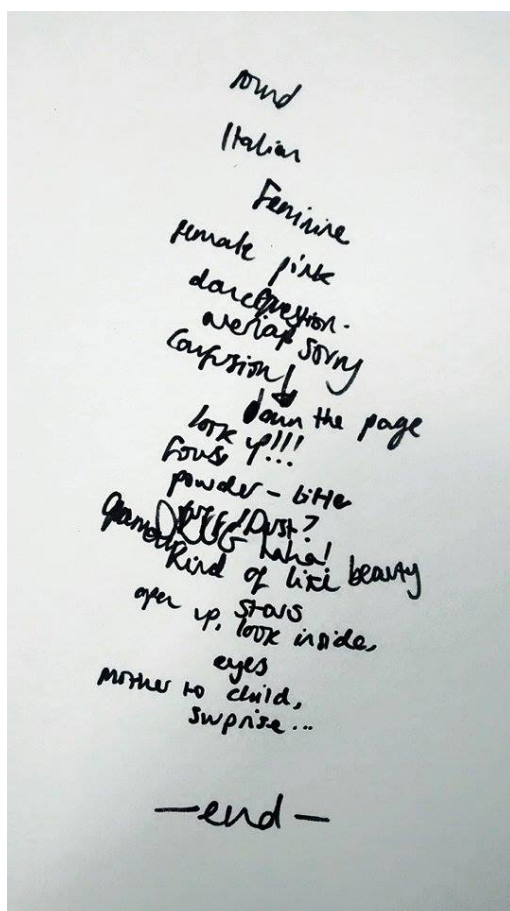 round
Italian
Feminine
female pink
dance question.
overlap sorry
Confusion!
down the page
look up!!!
Focus
powder - bitter
Dust?
glamour DRUG haha!
Kind of like beauty
stars
open up, look inside,
eyes
Mother to child,
surprise...
- end -